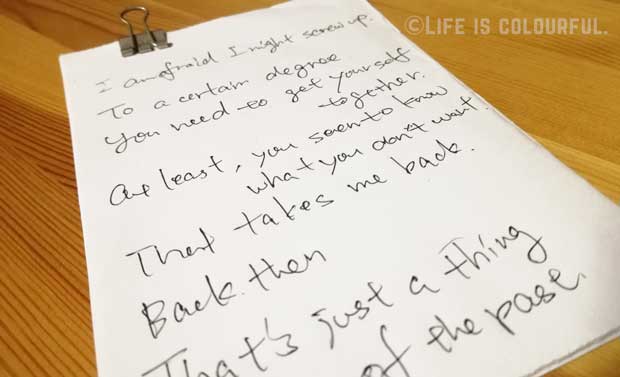 ©LIFE IS COLOURFUL.
I am afraid I might screw up.
To a certain degree
You need to get yourself
together.
At least, you seem to know
what you don't want!
That takes me back.
Back then
That's just a thing
of the past.